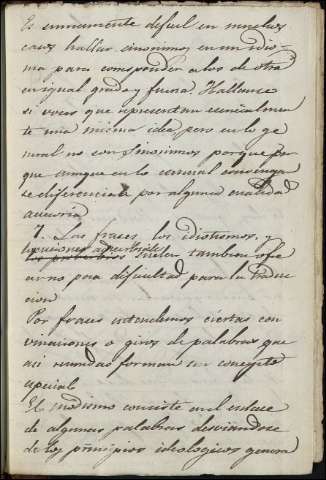 Es sumamente dificil en muchos
casos hallar sinonimos en un idio-
ma para corresponder a los de otra
en igual grado y fuerza. Hallanse
si voces que representan esencialmen
te una misma idea, pero en lo ge
neral no son sinonimos porque
que aunque en lo esencial convengan
se diferencian por alguna cualidad
accesoria
7. Las frases, los idiotismos, y
locuciones suelen tambien ofre
cer no poca dificultad para la traduc
cion
Por frases entendemos ciertas con
vinaciones o giros de palabras que
asi reunidas forman un concepto
especial
El modismo consiste en el enlace
de algunas palabras desviandose
de los principios ideologicos genera